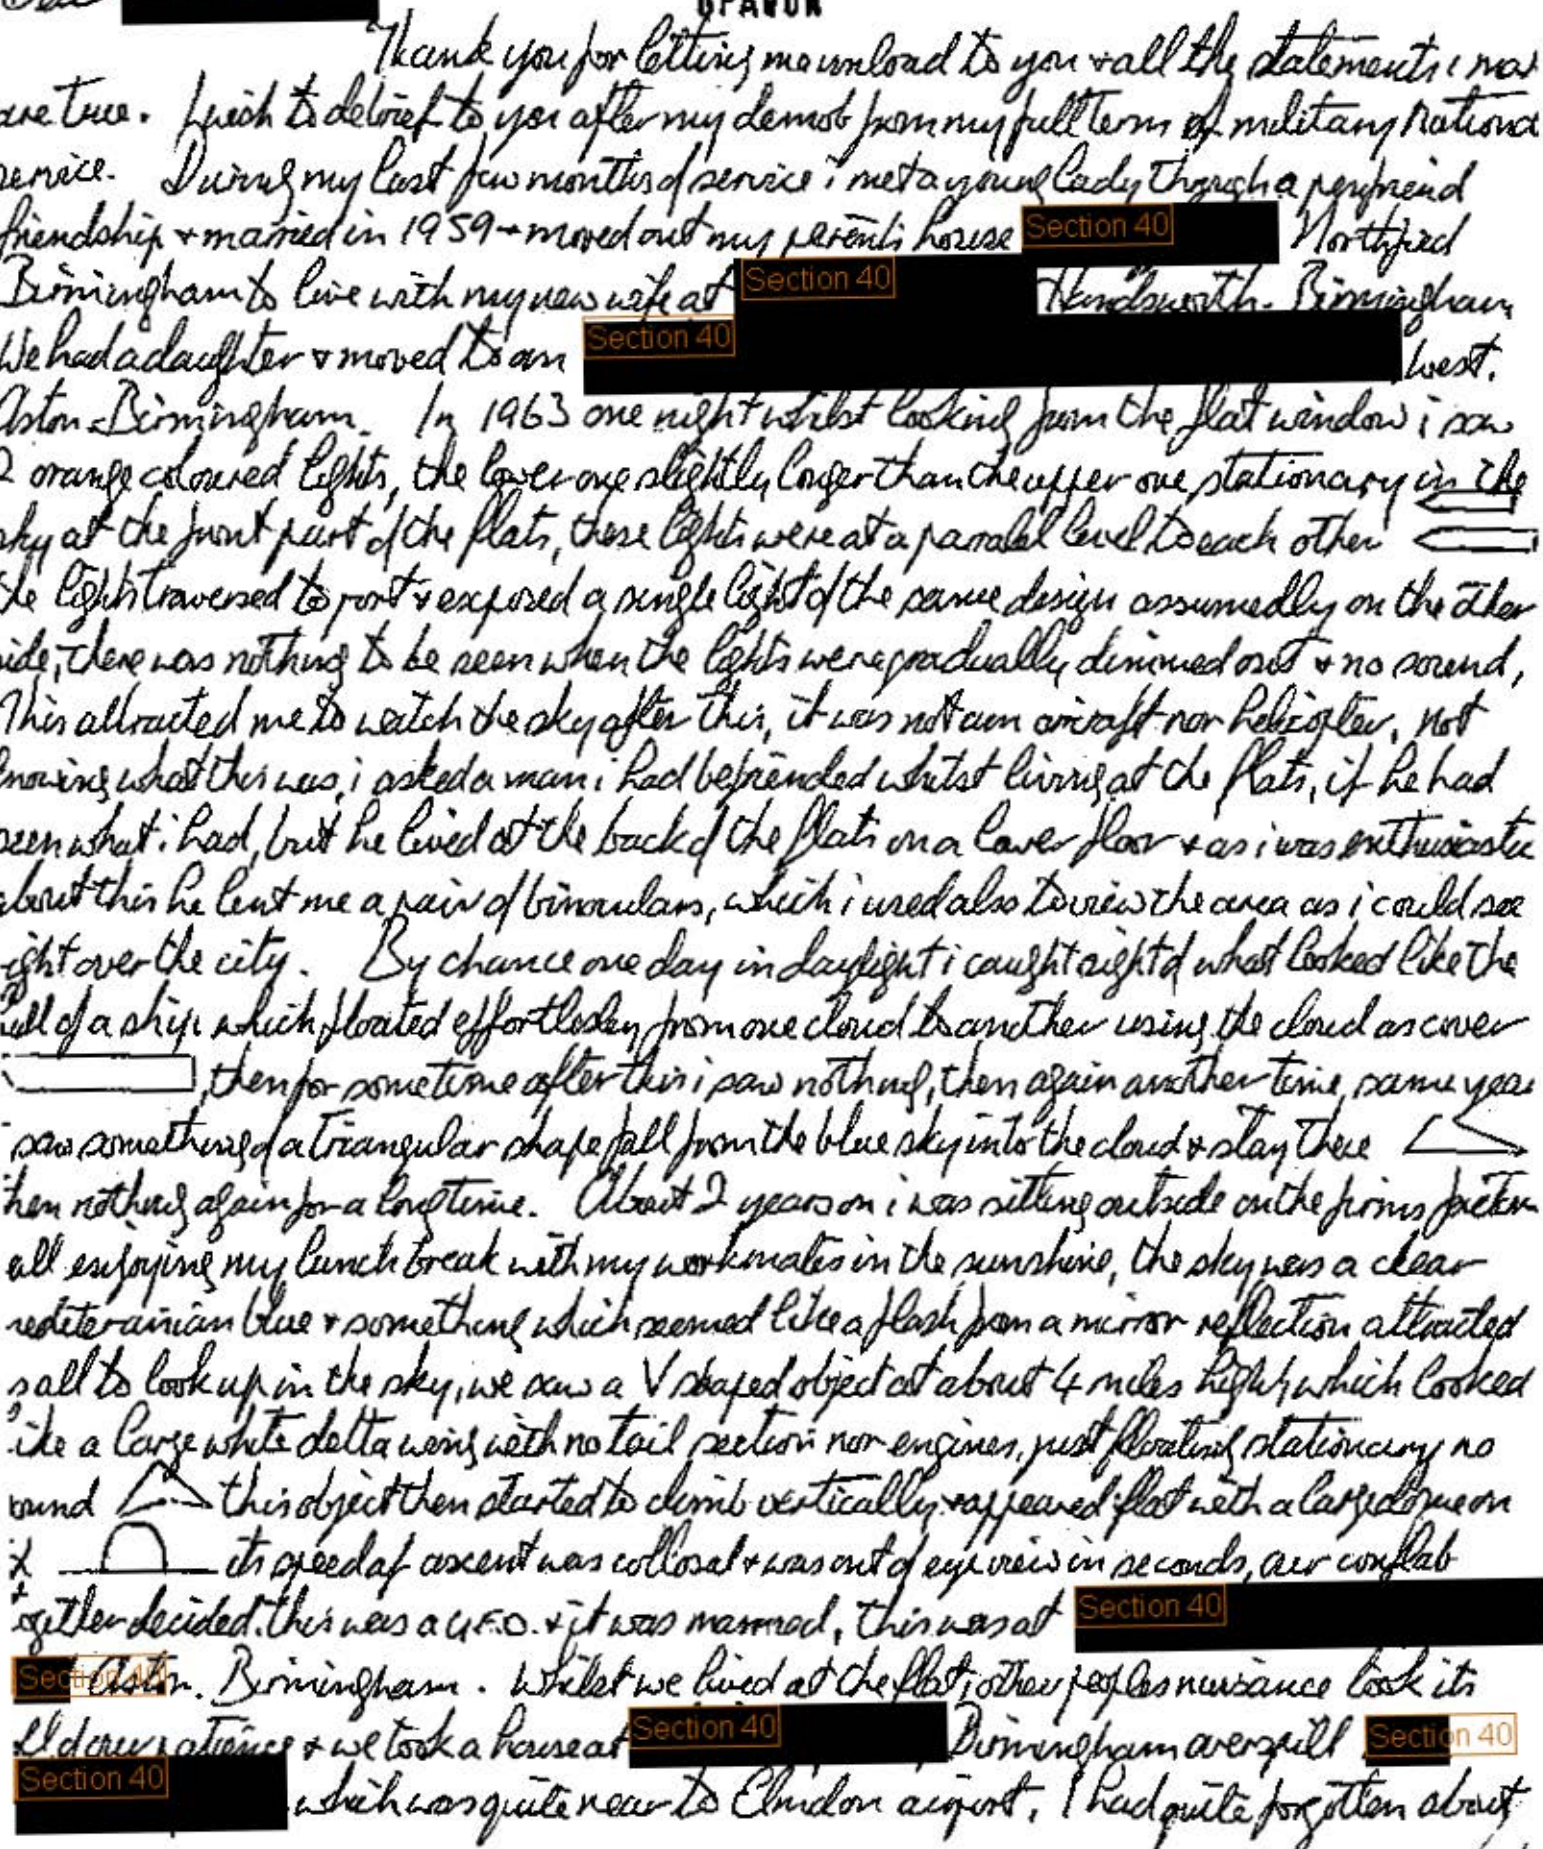 Thank you for letting me unload to you + all the statements i
are true. I wish to debrief to you after my demob from my full term of military Nationa
ervice. During my last few months of service i met a young lady through a penfriend
friendship + married in 1959 + moved out my parents house Section 40 Northfied
Birmingham to live with my new wife at Section 40 Handsworth. Birmingham
We had a daughter + moved to an Section 40 west.
Aston - Birmingham. In 1963 one night whilst looking from the flat window i saw
2 orange coloured lights, the lower one slightly longer than the upper one stationary in the
sky at the front part of the flats, these lights were at a paralel level to each other
the lights traversed to port + exposed a single light of the same design assumedly on the other
ide, there was nothing to be seen when the lights were gradually dimmed out + no sound,
This attracted me to watch the sky after this, it was not an aircraft nor helicopter, not
knowing what this was, i asked a man i had befriended whilst living at the flats, if he had
seen what i had, but he lived at the back of the flats on a lower floor + as i was enthusiastic
about this he lent me a pair of binoculars, which i used also to view the area as i could see
ight over the city. By chance one day in daylight i caught sight of what looked like the
ull of a ship which floated effortlesley from one cloud to another using the cloud as cover
, then for sometime after this i saw nothing, then again another time, same year
saw something of a triangular shape fall from the blue sky into the cloud + stay there
then nothing again for a long time. About 2 years on i was sitting outside on the firms
all enjoying my lunch break with my workmates in the sunshine, the sky was a clear
mediteranian blue + something which seemed like a flash from a mirror reflection attracted
s all to look up in the sky, we saw a V shaped object at about 4 miles high, which looked
ike a large white delta wing with no tail section nor engines, just floating stationary no
ound this object then started to climb vertically + appeared flat with a large dome on
it its speed of ascent was collosal + was out of eye view in seconds, our conflab
together decided this was a U.F.O. + it was manned, this was at Section 40
Section 40 Aston. Birmingham. Whilst we lived at the flat, other peoples nuisance took its
our patience + we took a house at Section 40 Birmingham overspill Section 40
Section 40 which was quite near to Elmdon airport. I had quite forgotten about